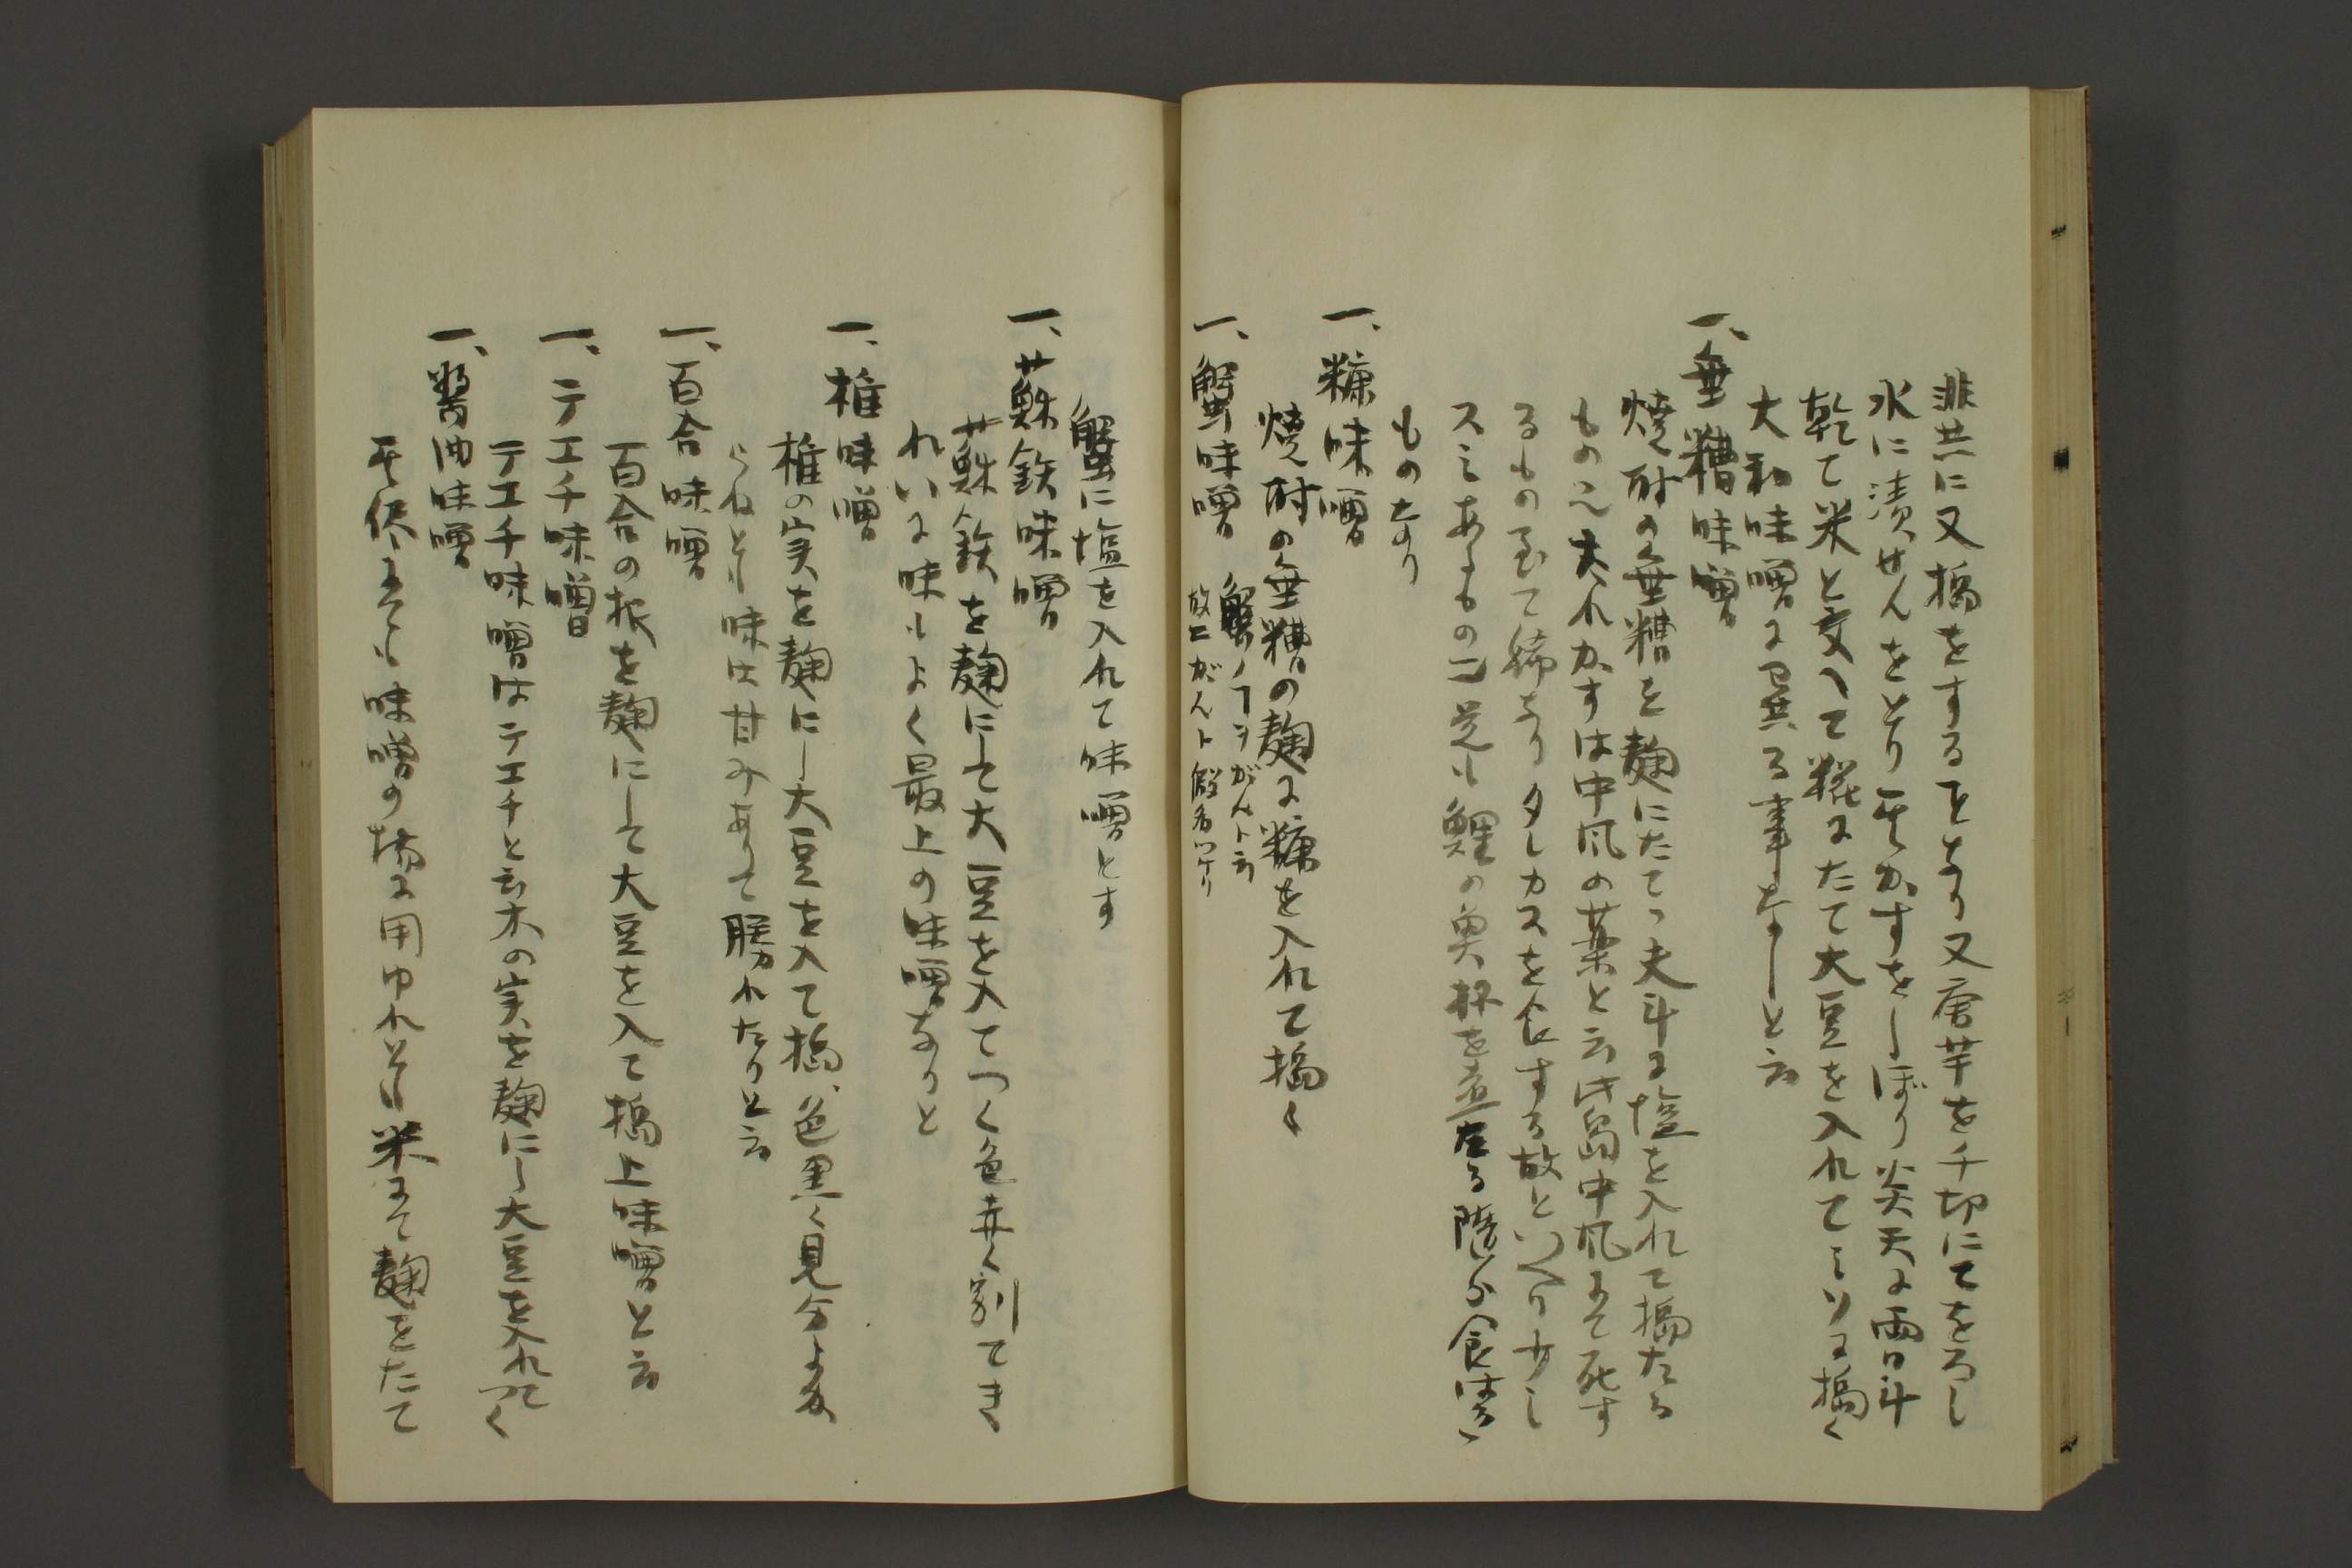 韮共に又搗をするとなり又唐芋を千切にてをろし
水に漬せんをとり其かすをしぼり炎天に両日斗
乾て米と交へて糀にたて大豆を入れてミソに搗く
大和味噌に異る事なしと云
一、垂糟味噌
焼酎の垂糟を麹にたてつ夫斗に塩を入れて搗たる
もの也夫れかすは中風の薬と云此島中風にて死す
るもの至て稀なりタレカスを食する故といへり少し
スミあるもの二見も鯉の魚杯を煮たる随分食はるゝ
ものなり
一、糠味噌
焼酎の垂糟の麹に糠を入れて搗く
一、蟹味噌 蟹ノ ヲがんト云
故ニがんト假名ツケリ
蟹に塩を入れて味噌とす
一、蘇鉄味噌
蘇鉄を麹にして大豆を入てつく色赤く割てき
れいに味もよく最上の味噌なりと
一、椎味噌
椎の実を麹にし大豆を入て搗、色黒く見分よか
らねども味は甘みありて勝れたりと云
一、百合味噌
百合の根を麹にして大豆を入て搗上味噌と云
一、テエチ味噌
テエチ味噌はテエチと云木の実を麹にし大豆を入れてつく
一、醤油味噌
其侭にても味噌の場に用ゆれども米にて麹をたて